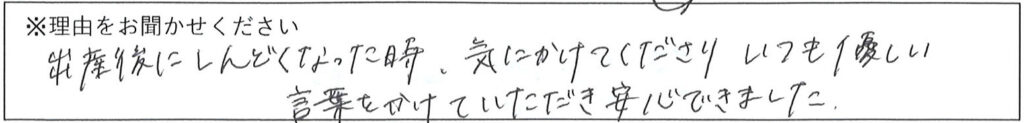 ※理由をお聞かせください
出産後にしんどくなった時、気にかけてくださり いつも優しい
言葉をかけていただき安心できました。